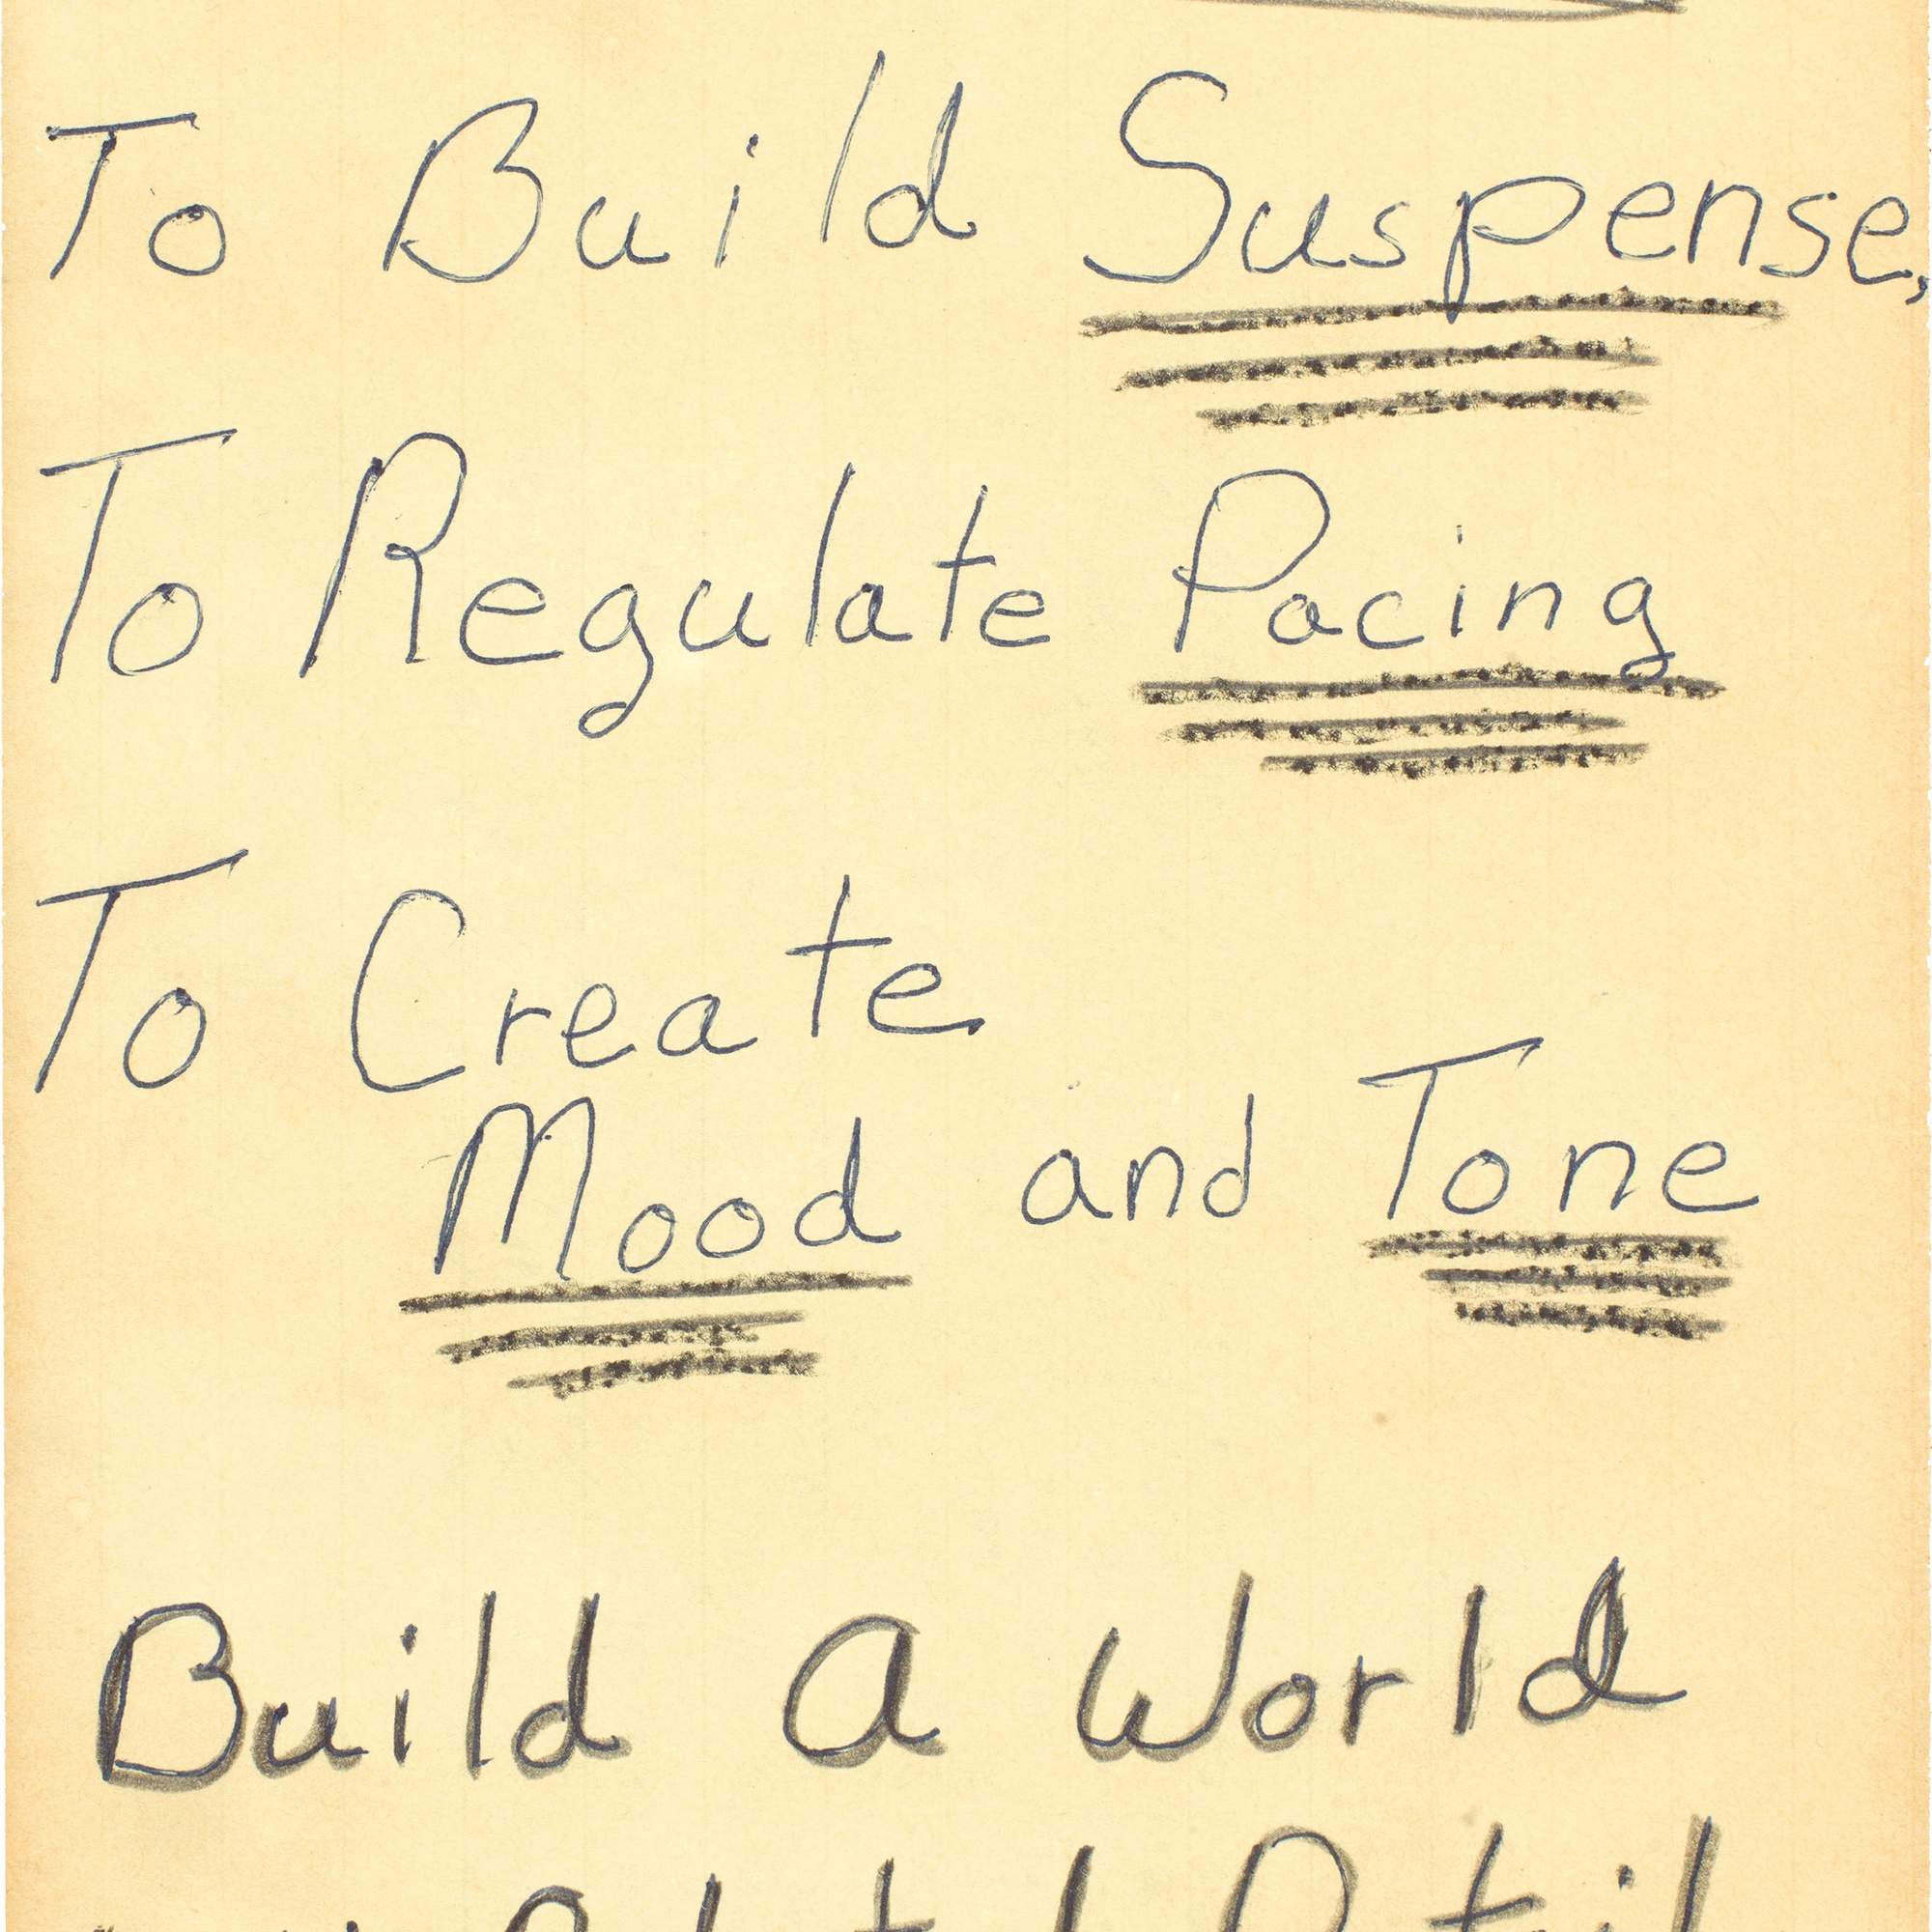 To Build Suspense,
To Regulate Pacing
To Create
Mood and Tone
Build A World